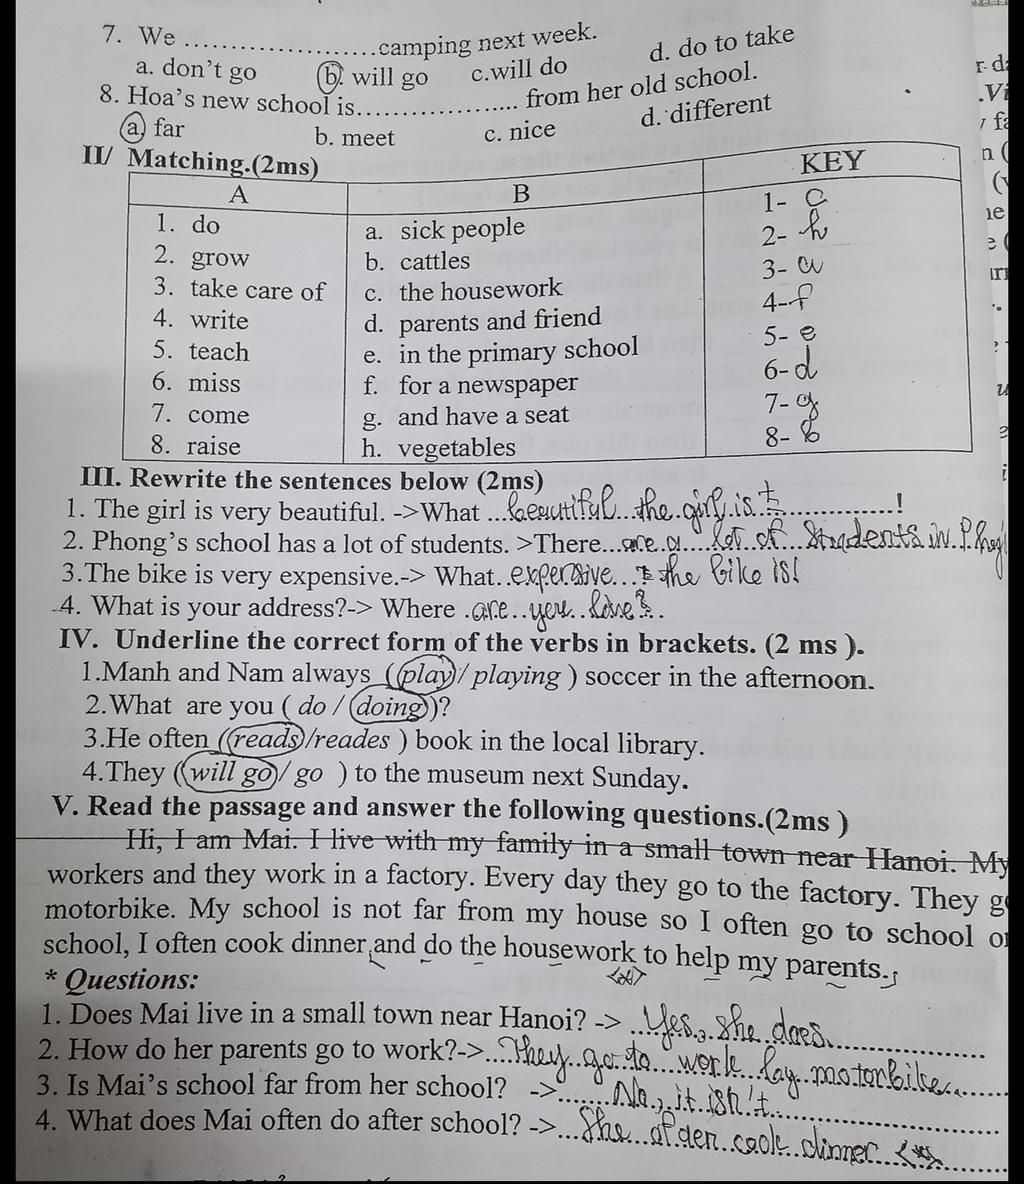 7. We ....................camping next week.
a. don't go b. will go c.will do d. do to take
8. Hoa's new school is................. from her old school.
a. far b. meet c. nice d. different
II/ Matching.(2ms)
A B KEY
1. do a. sick people 1- c
2. grow b. cattles 2- h
3. take care of c. the housework 3- a
4. write d. parents and friend 4- f
5. teach e. in the primary school 5- e
6. miss f. for a newspaper 6- d
7. come g. and have a seat 7- g
8. raise h. vegetables 8- b
III. Rewrite the sentences below (2ms)
1. The girl is very beautiful. ->What ...beautiful...the girl is..............!
2. Phong's school has a lot of students. >There...are a...lot of...students in
3.The bike is very expensive.-> What..expensive...the bike is!
4. What is your address?-> Where .are..you..live?..
IV. Underline the correct form of the verbs in brackets. (2 ms ).
1.Manh and Nam always (play/ playing ) soccer in the afternoon.
2.What are you ( do / doing)?
3.He often (reads/reades ) book in the local library.
4.They (will go/ go ) to the museum next Sunday.
V. Read the passage and answer the following questions.(2ms )
Hi, I am Mai. I live with my family in a small town near Hanoi. My
workers and they work in a factory. Every day they go to the factory. They
motorbike. My school is not far from my house so I often go to school
school, I often cook dinner and do the housework to help my parents.
* Questions:
1. Does Mai live in a small town near Hanoi? -> ..Yes, she does..................
2. How do her parents go to work?->...They go to...work...by motorbike..........
3. Is Mai's school far from her school? ->.......No, it isn't.........................
4. What does Mai often do after school? ->...She...ofden cook dinner..............